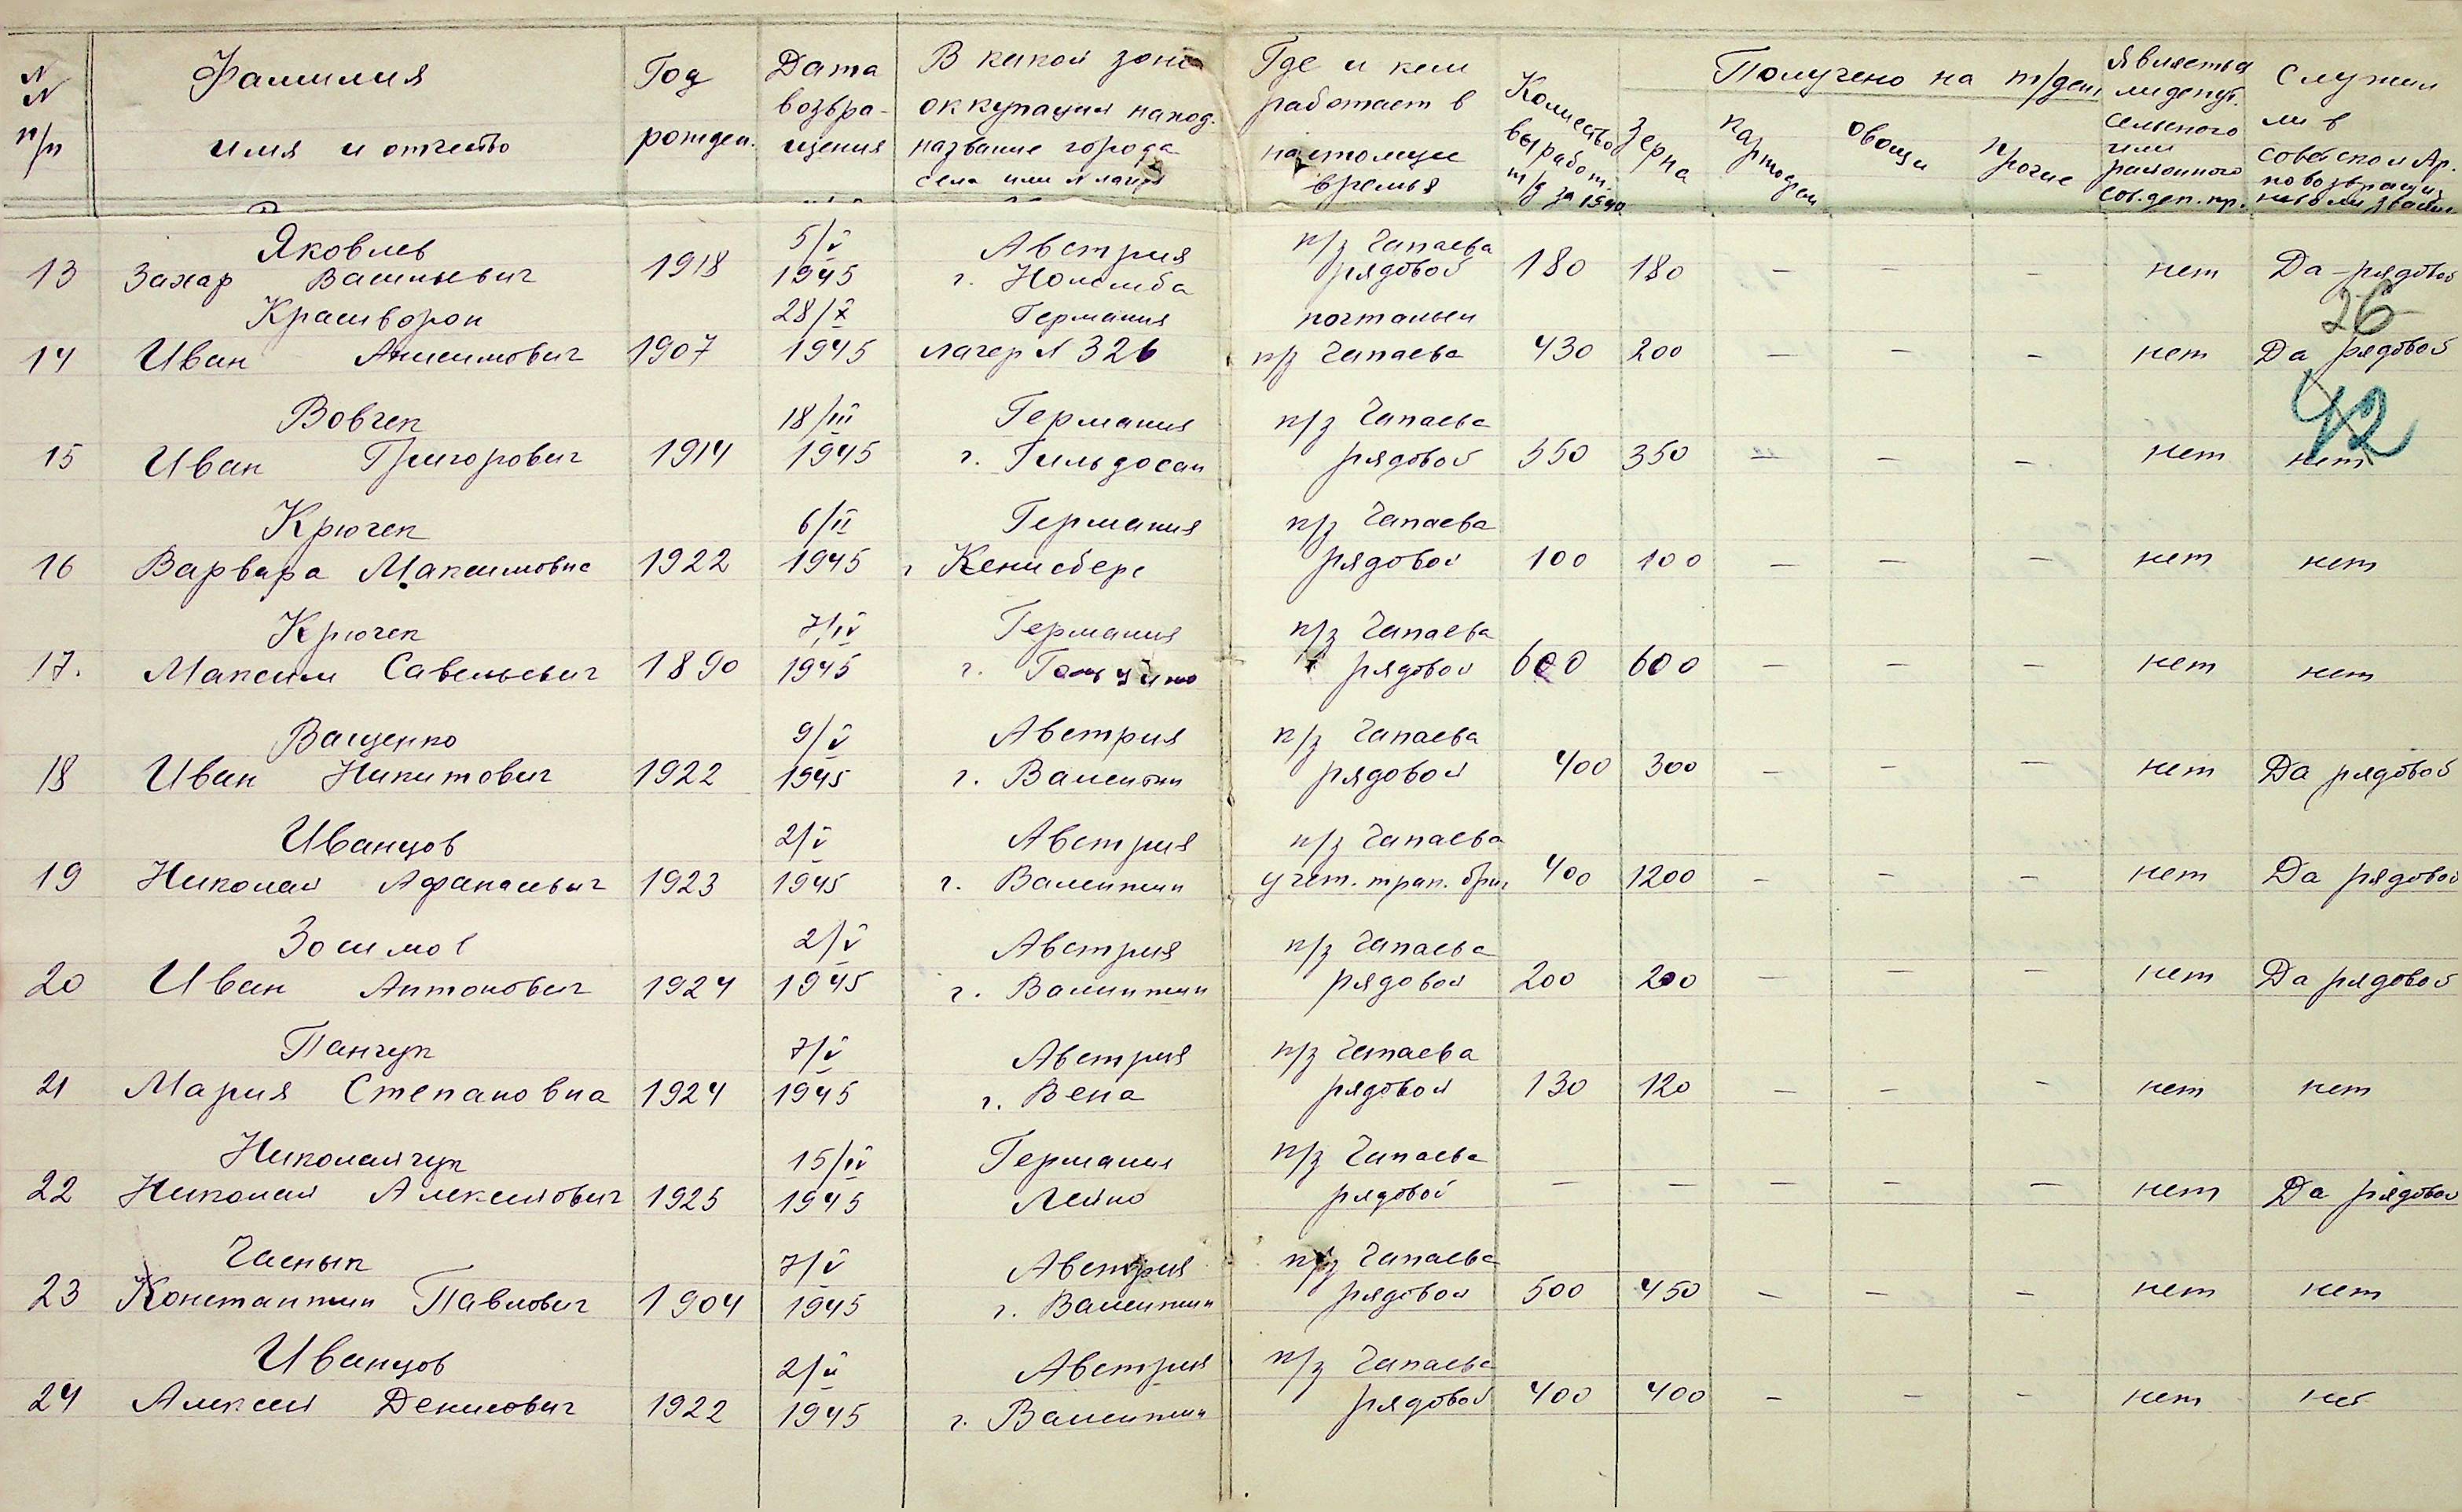 N N п/п
Фамилия имя и отчество
Год рожден.
Дата возвра- щения
В какой зоне оккупации наход. название города села или № лагеря
Где и кем работает в настоящее время
Количество выработ. т/д за
Получено на т/ден
Зерна
овощи
прочие
Является ли депут. сельского или районного сов. деп. тр.
Служил ли в
Яковлев 5/V Австрия к/з Чапаева
13 Захар Васильевич 1918 1945 г. рядовой 180 180 – – – нет Да – рядовой
26
28/X Германия почтальон
14 Иван Анисимович 1907 1945 лагер N 326 к/з Чапаева 430 200 – – – нет Да рядовой
42
Вовчек 18/III Германия к/з Чапаева
15 Иван Григорович 1914 1945 г. рядовой 550 350 – – – нет нет
Крючек 6/II Германия к/з Чапаева
16 Варвара Максимовна 1922 1945 г Кенисберг рядовой 100 100 – – – нет нет
Крючек 7/IV Германия к/з Чапаева
17. Максим Савельевич 1890 1945 г. рядовой 600 600 – – – нет нет
Ващенко 9/V Австрия к/з Чапаева
18 Иван Никитович 1922 1945 г. Валентин рядовой 400 300 – – – нет Да рядовой
Иванцов 2/V Австрия к/з Чапаева
19 Николай Афанасьевич 1923 1945 г. Валентин учет. трак. бриг 400 1200 – – – нет Да рядовой
Зосимов 2/V Австрия к/з Чапаева
20 Иван Антонович 1924 1945 г. Валинтин рядовой 200 200 – – – нет Да рядовой
Панчук 7/V Австрия к/з Чапаева
21 Мария Степановна 1924 1945 г. Вена рядовой 130 120 – – – нет нет
Николайчук 15/IV Германия к/з Чапаева
22 Николай Алексеевич 1925 1945 рядовой – – – – – нет Да рядовой
Часнык 7/V Австрия к/з Чапаева
23 Константин Павлович 1904 1945 г. Валентин рядовой 500 450 – – – нет нет
Иванцов 2/II Австрия к/з Чапаева
24 Алексей Денисович 1922 1945 г. Валентин рядовой 400 400 – – – нет нет